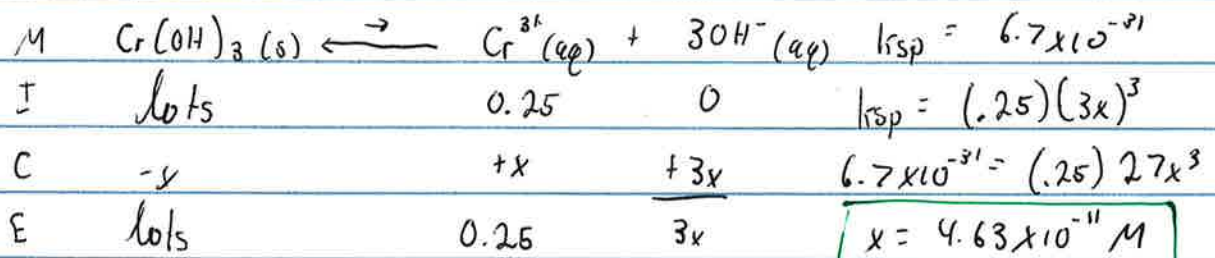 M Cr(OH)3 (s) ⟷ → Cr3+ (aq) + 3OH- (aq) ksp = 6.7x10^-31
I lots 0.25 0 ksp = (.25)(3x)^3
C -x +x +3x 6.7x10^-31 = (.25) 27x^3
E lots 0.25 3x x = 4.63x10^-11 M